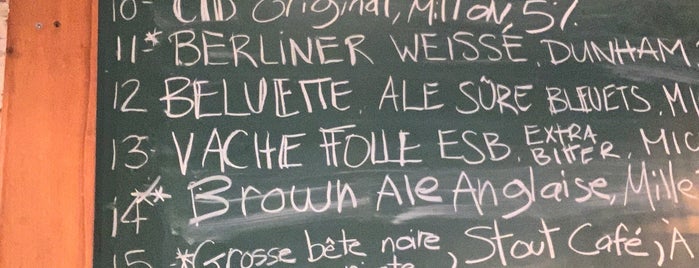 10- CID Original, Milton 5%
11* BERLINER WEISSÉ, DUNHAM,
12 BELUETTE, ALE SÛRE BLEUETS, MI
13- VACHE FOLLE ESB, EXTRA BITTER, MIC
14 ** Brown Ale Anglaise, Mille
15 *Grosse bête noire, Stout Café, À